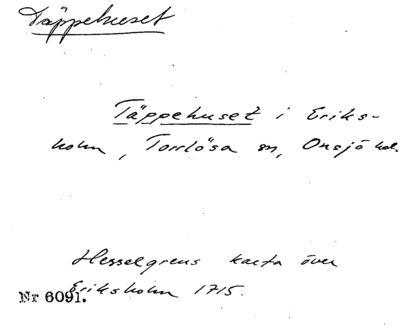 Täppehuset
Täppehuset i Eriks-
holm, Torrlösa sn, Onsjö hd.
Hesselgrens karta över
Eriksholm 1715.
Nr 6091.